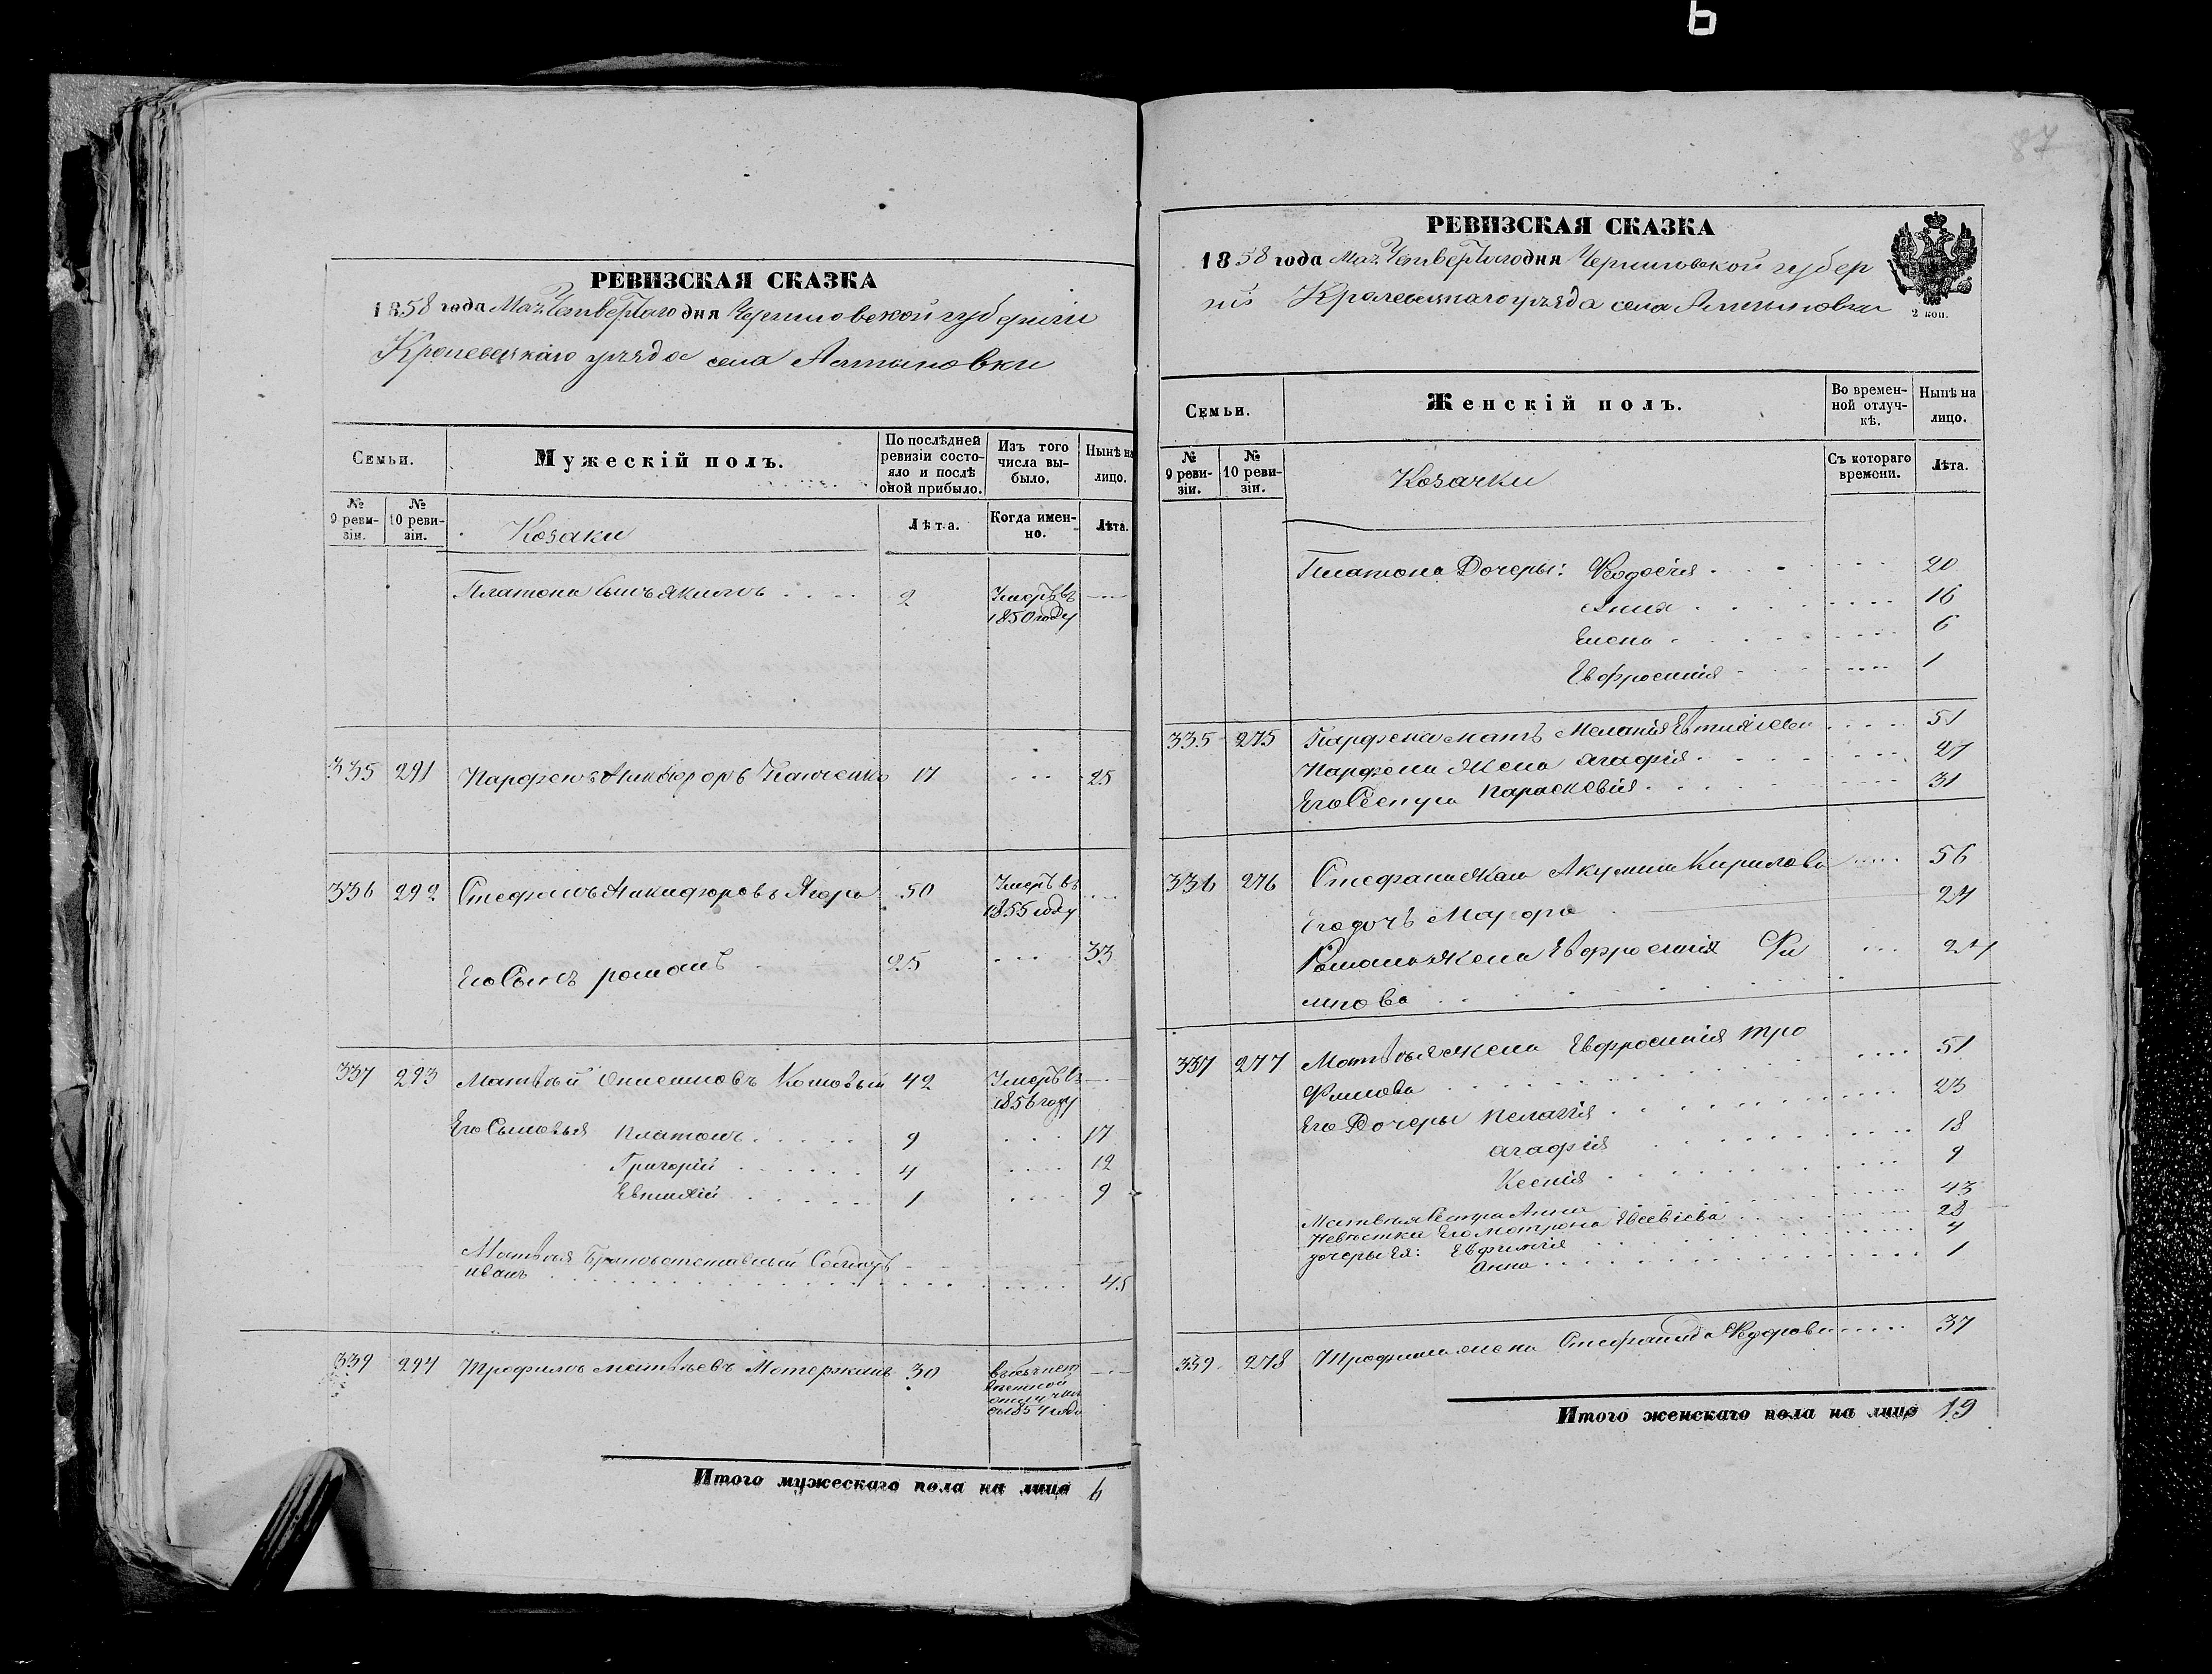 6
РЕВИЗСКАЯ СКАЗКА
1858 года Мая Четвертаго дня Черниговской губернии
Кролевецкаго уѣзда села Алтыновки
Семьи.
Мужескій полъ.
По послѣдней ревизіи состояло и послѣ оной прибыло.
Изъ того числа выбыло.
Нынѣ на лицо.
№ 9 ревизіи.
№ 10 ревизіи.
Козаки
Лѣта.
Когда именно.
Лѣта.
Платона сынъ Якимъ 2 Умеръ въ
1850 году
335 291 Парфенъ Никифоровъ 17 25
336 292 Стефанъ Никифоровъ Ягора 50 Умеръ въ
1855 году
Его Сынъ романъ 25 33
337 293 Матвѣй Онисимовъ Котовый 42 Умеръ въ
1856 году
Его Сыновья Платонъ 9 17
Григорій 4 12
Евтихій 1 9
Матвѣя Братъ отставный Солдатъ
иванъ 45
339 294 Трофимъ Матвѣевъ 30
съ 1854 года
Итого мужескаго пола на лицо 6
87
РЕВИЗСКАЯ СКАЗКА
1858 года Мая Четвертаго дня Черниговской губер
ніи Кролевецкаго уѣзда села Алтыновки
2 коп.
Семьи.
Женскій полъ.
Во временной отлучкѣ.
Нынѣ на лицо.
№ 9 ревизіи.
№ 10 ревизіи.
Козачки
Съ котораго времени.
Лѣта.
Платона Дочеры: Феодосія 20
Анна 16
Елена 6
Евфросинія 1
335 275 Парфена мать Меланія 51
Парфена Жена агафія 27
Его Сестра Параскевія 31
336 276 Стефана жена Акулина Кирилова 56
Его дочь 24
Романа жена Евфросинія Фи
липова
337 277 Матвѣя жена Евфросинія тро
Фимова 51
Его Дочеры Пелагія 23
агафія 18
Ксенія 9
Матвѣя Сестра Анна 43
Невѣстка Его мотрона Евсевіева 28
дочеры Ея: Евфимія 4
Анна 1
339 278 Трофима жена Стефанида Федорова 37
Итого женскаго пола на лицо 19